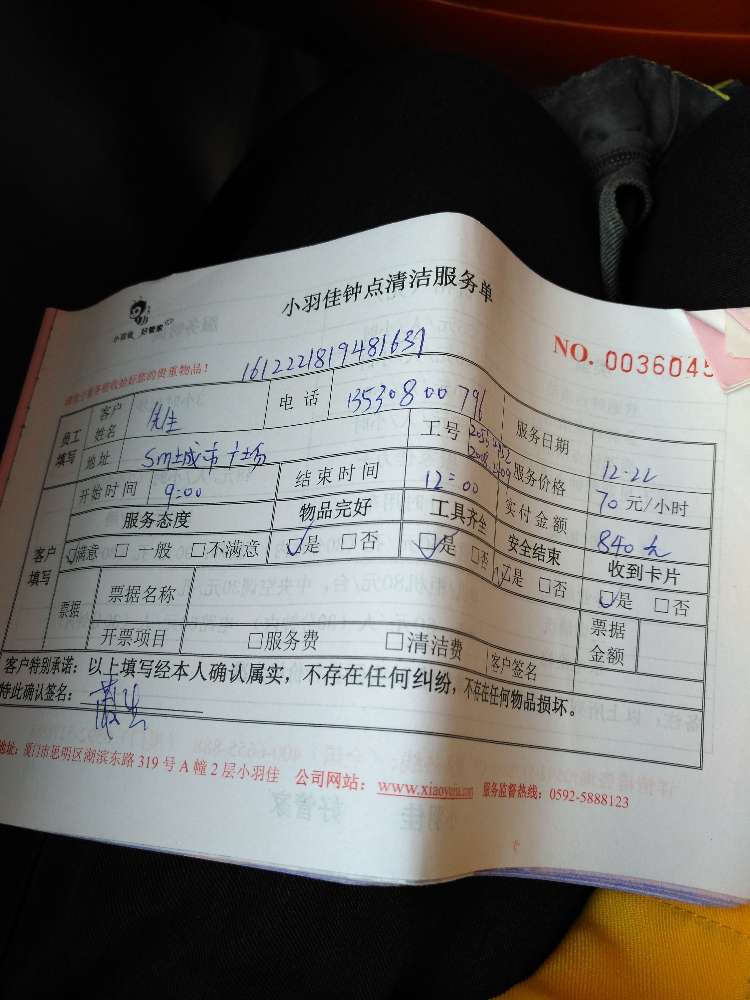 小羽佳钟点清洁服务单
小羽佳 好管家
NO. 0036045
请客户事务前收拾好您的贵重物品！
161222181948163
员工填写 客户姓名 先生 电话 13530800796 服务日期 12-22
地址 SM城市广场 工号 服务价格 70元/小时
开始时间 9:00 结束时间 12:00 实付金额 840元
客户填写 服务态度 物品完好 工具齐全 安全结束 收到卡片
☑满意 □一般 □不满意 ☑是 □否 ☑是 □否 ☑是 □否 ☑是 □否
票据 票据名称 票据金额
开票项目 □服务费 □清洁费 客户签名
客户特别承诺：以上填写经本人确认属实，不存在任何纠纷，不存在任何物品损坏。
特此确认签名：
地址：厦门市思明区湖滨东路 319 号 A 幢 2 层小羽佳 公司网站：www.xiaoyujia.com 服务监督热线：0592-5888123